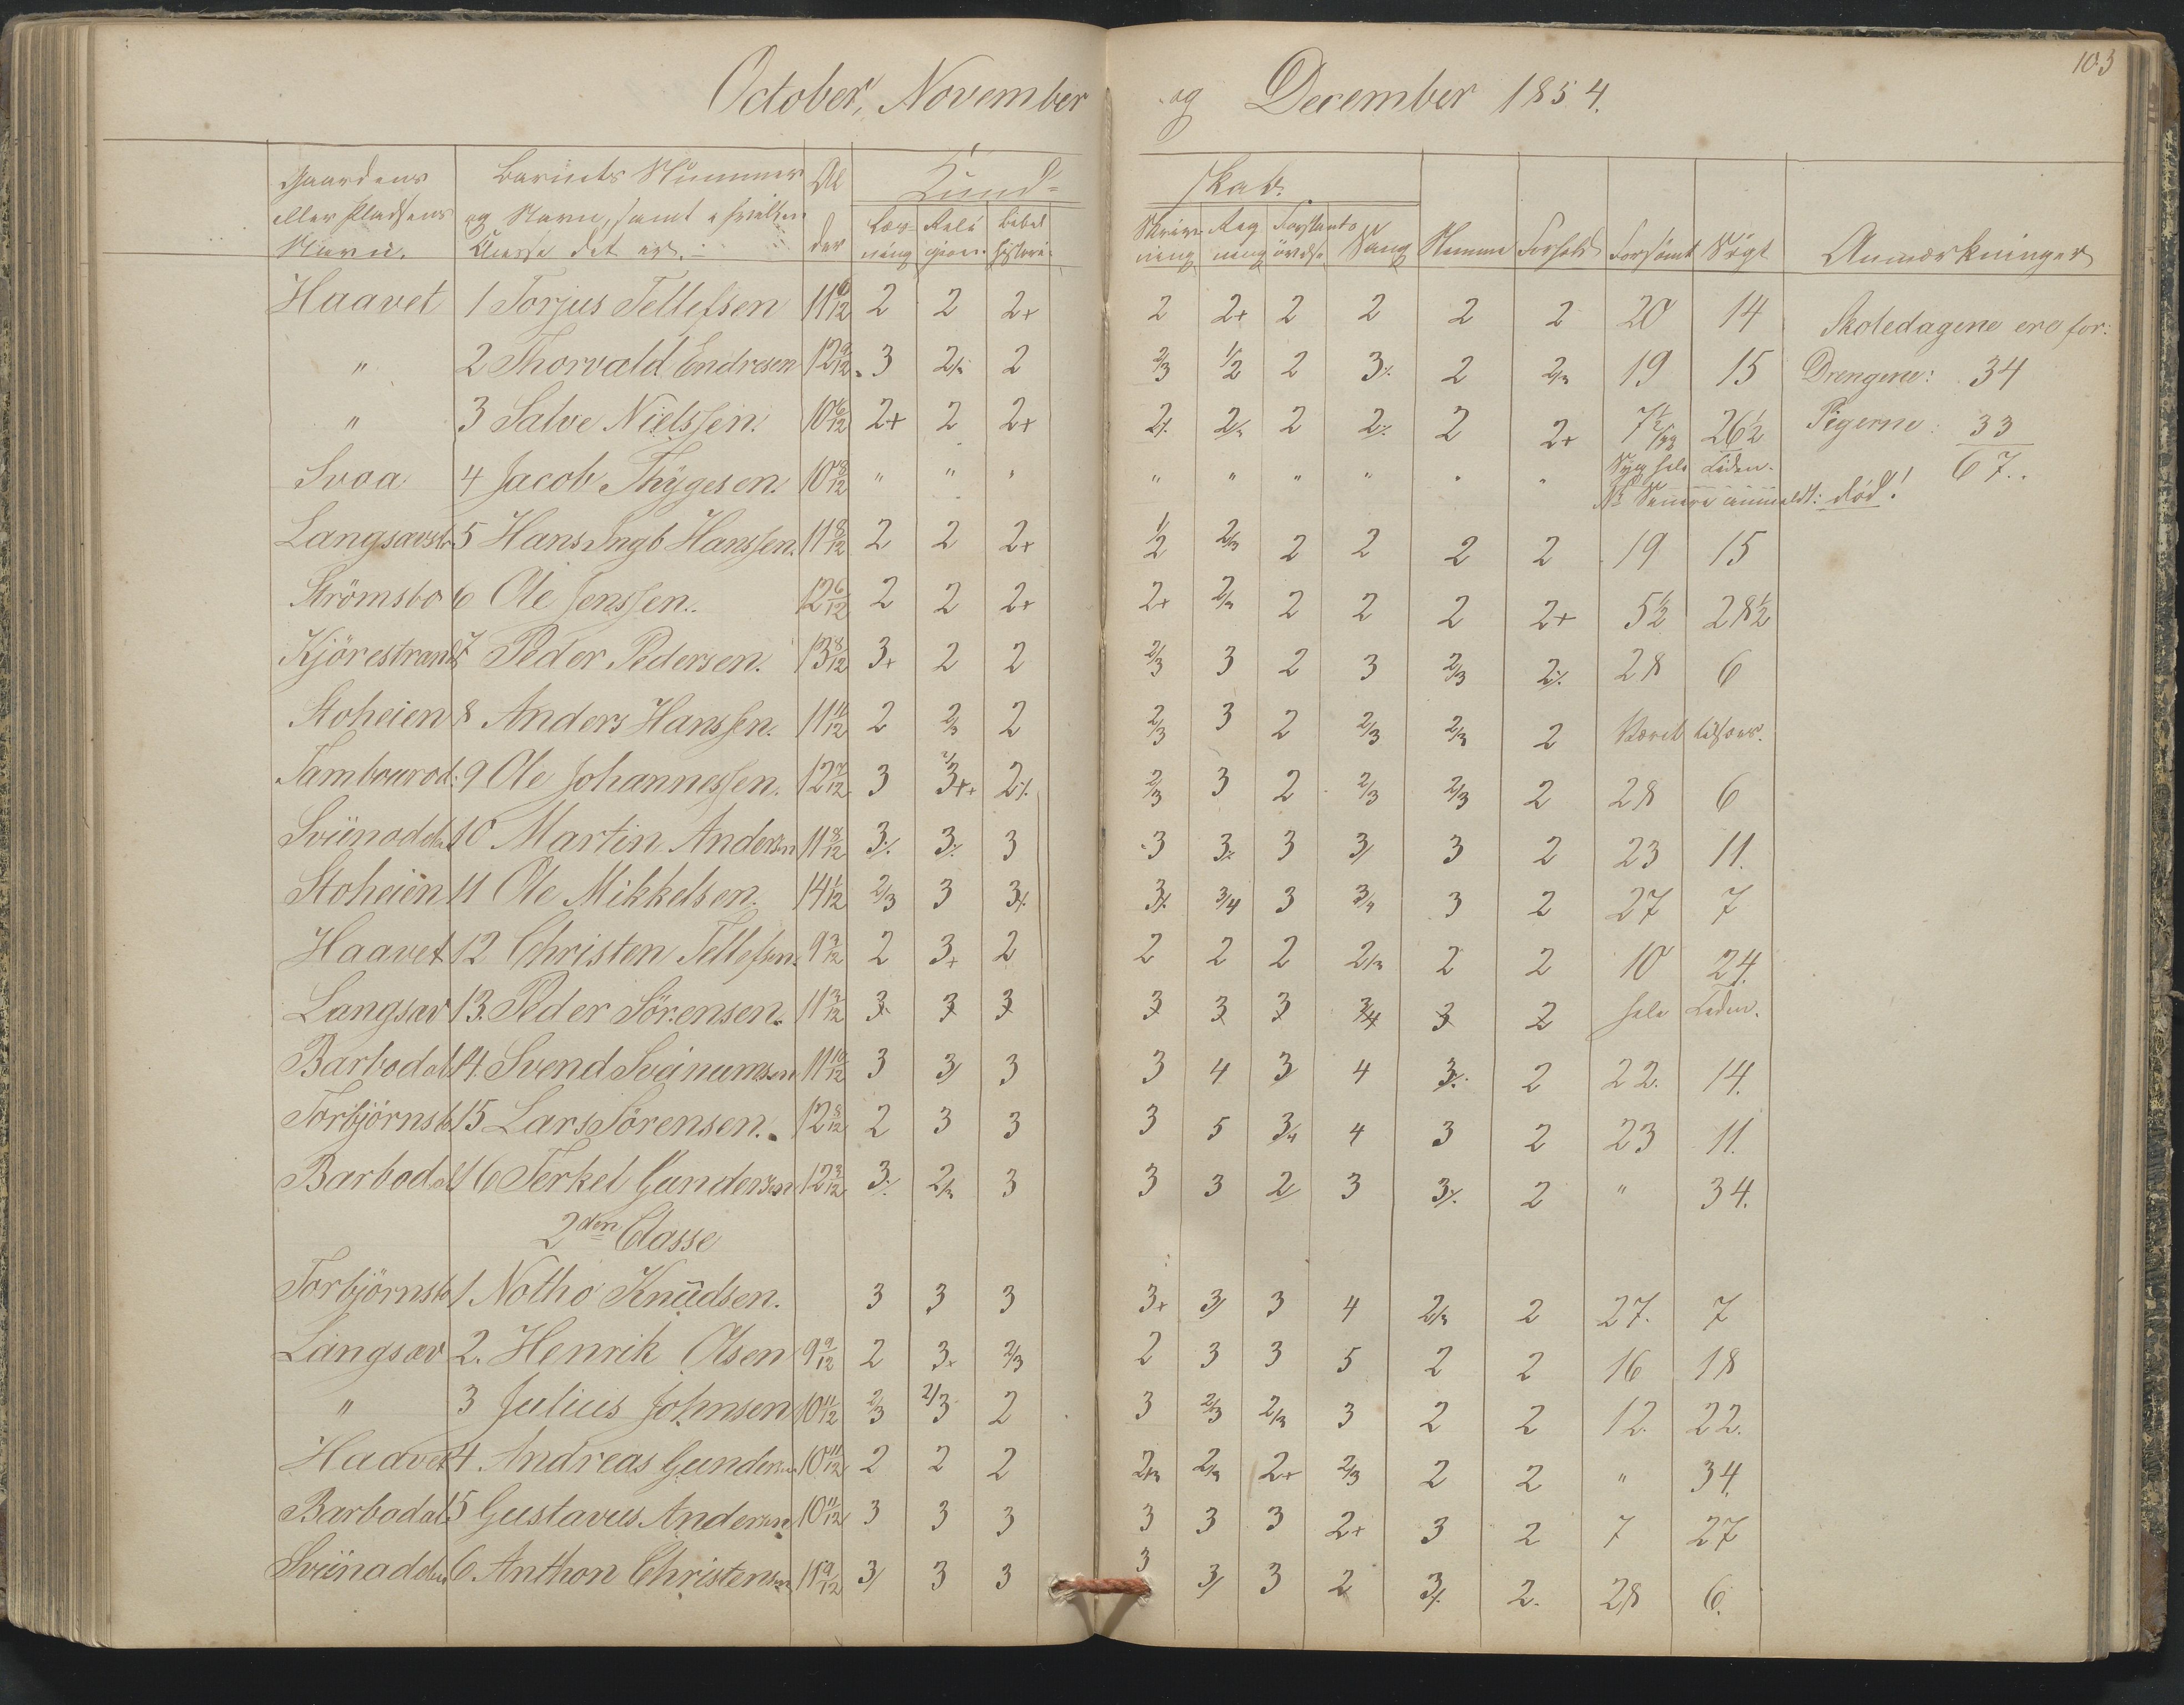 103
October, November og December 1854.
Gaardens eller Pladsens Navn. Barnets Nummer og Navn, samt i hvilken Classe det er. Alder Kund= skab.
Læsning Religion Bibelhistorie Skrivning Regning Forstandsøvelse Sang Nemme Forhold Forsømt Søgt Anmærkninger
Haavet 1 Torjus Tellefsen 11 6/12 2 2 2+ 2 2+ 2 2 2 2 20 14 Skoledagene ere for:
" 2 Thorvald Endresen 12 9/12 3 2/3 2 2/3 1/2 2 3⁒ 2 2/3 19 15 Drengene: 34
" 3 Salve Nielssen. 10 6/12 2+ 2 2+ 2⁒ 2/3 2 2⁒ 2 2+ 7½ 26½ Pigerne: 33
Svaa 4 Jacob Thygesen. 10 8/12 " " " " " " " " " Syg hele Tiden. 67.
NB Senere anmeldt: død!
Langsavstr 5 Hans Ingb Hanssen. 11 8/12 2 2 2+ 1/2 2/3 2 2 2 2 19 15
Strömsbo 6 Ole Jenssen. 12 6/12 2 2 2+ 2+ 2/3 2 2 2 2+ 5½ 28½
Kjörestrand 7 Peder Pedersen. 13 8/12 3+ 2 2 2/3 3 2 3 2/3 2⁒ 28 6
Stoheien 8 Anders Hanssen. 11 11/12 2 2/3 2 2/3 3 2 2/3 2/3 2 Været tilsøes.
Tambourod: 9 Ole Johannessen. 12 7/12 3 3++ 2⁒ 2/3 3 2 2/3 2/3 2 28 6
Sviinodden 10 Martin Andersen 11 8/12 3⁒ 3⁒ 3 3 3⁒ 3 3/ 3 2 23 11.
Stoheien 11 Ole Mikkelsen. 14 1/12 2/3 3 3⁒ 3⁒ 3/4 3 3/4 3 2 27 7
Haavet 12 Christen Tellefsen. 9 3/12 2 3+ 2 2 2 2 2/3 2 2 10 24.
Langsav 13. Peder Sörensen. 11 3/12 3 3 3 3 3 3 3/4 3 2 hele Tiden.
Barbodal 14. Svend Sveinumsen 11 10/12 3 3/ 3 3 4 3/ 4 3⁒ 2 22. 14.
Torbjörnsb 15 Lars Sörensen. 12 8/12 2 3 3 3 5 3/4 4 3 2 23 11.
Barbodal 16 Terkel Gundersen 12 3/12 3⁒ 2/3 3 3 3 2/ 3 3⁒ 2 " 34.
2den Classe
Torbjörnsb 1 Notho Knudsen. 3 3 3 3+ 3/ 3 4 2/3 2 27. 7
Langsav 2. Henrik Olsen 9 9/12 2 3+ 2/3 2 3 3 5 2 2 16 18
" 3 Julius Johnsen 10 11/12 2/3 2/3 2 3 2/3 2/3 3 2 2 12. 22.
Haavet 4. Andreas Gundersen 10 11/12 2 2 2 2/3 2/3 2+ 2/3 2 2 " 34.
Barbodal 5 Gustavus Andersen 10 11/12 3 3 3 3 3 3 2+ 3 2 7 27
Sviinodden 6. Anthon Christensen 11 9/12 3/ 3 3 3 3/ 3 2 3⁒ 2. 28 6.